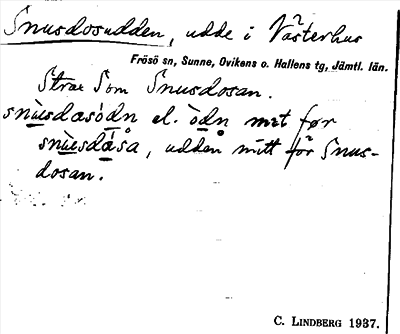 Snusdosudden, udde i Västerhus
Frösö sn, Sunne, Ovikens o. Hallens tg, Jämtl. län.
Strax Som Snusdosan.
snùsdasòdn el. òdn mɩt før
snùsdåsa, udden mitt för Snus-
dosan.
C. LINDBERG 1937.